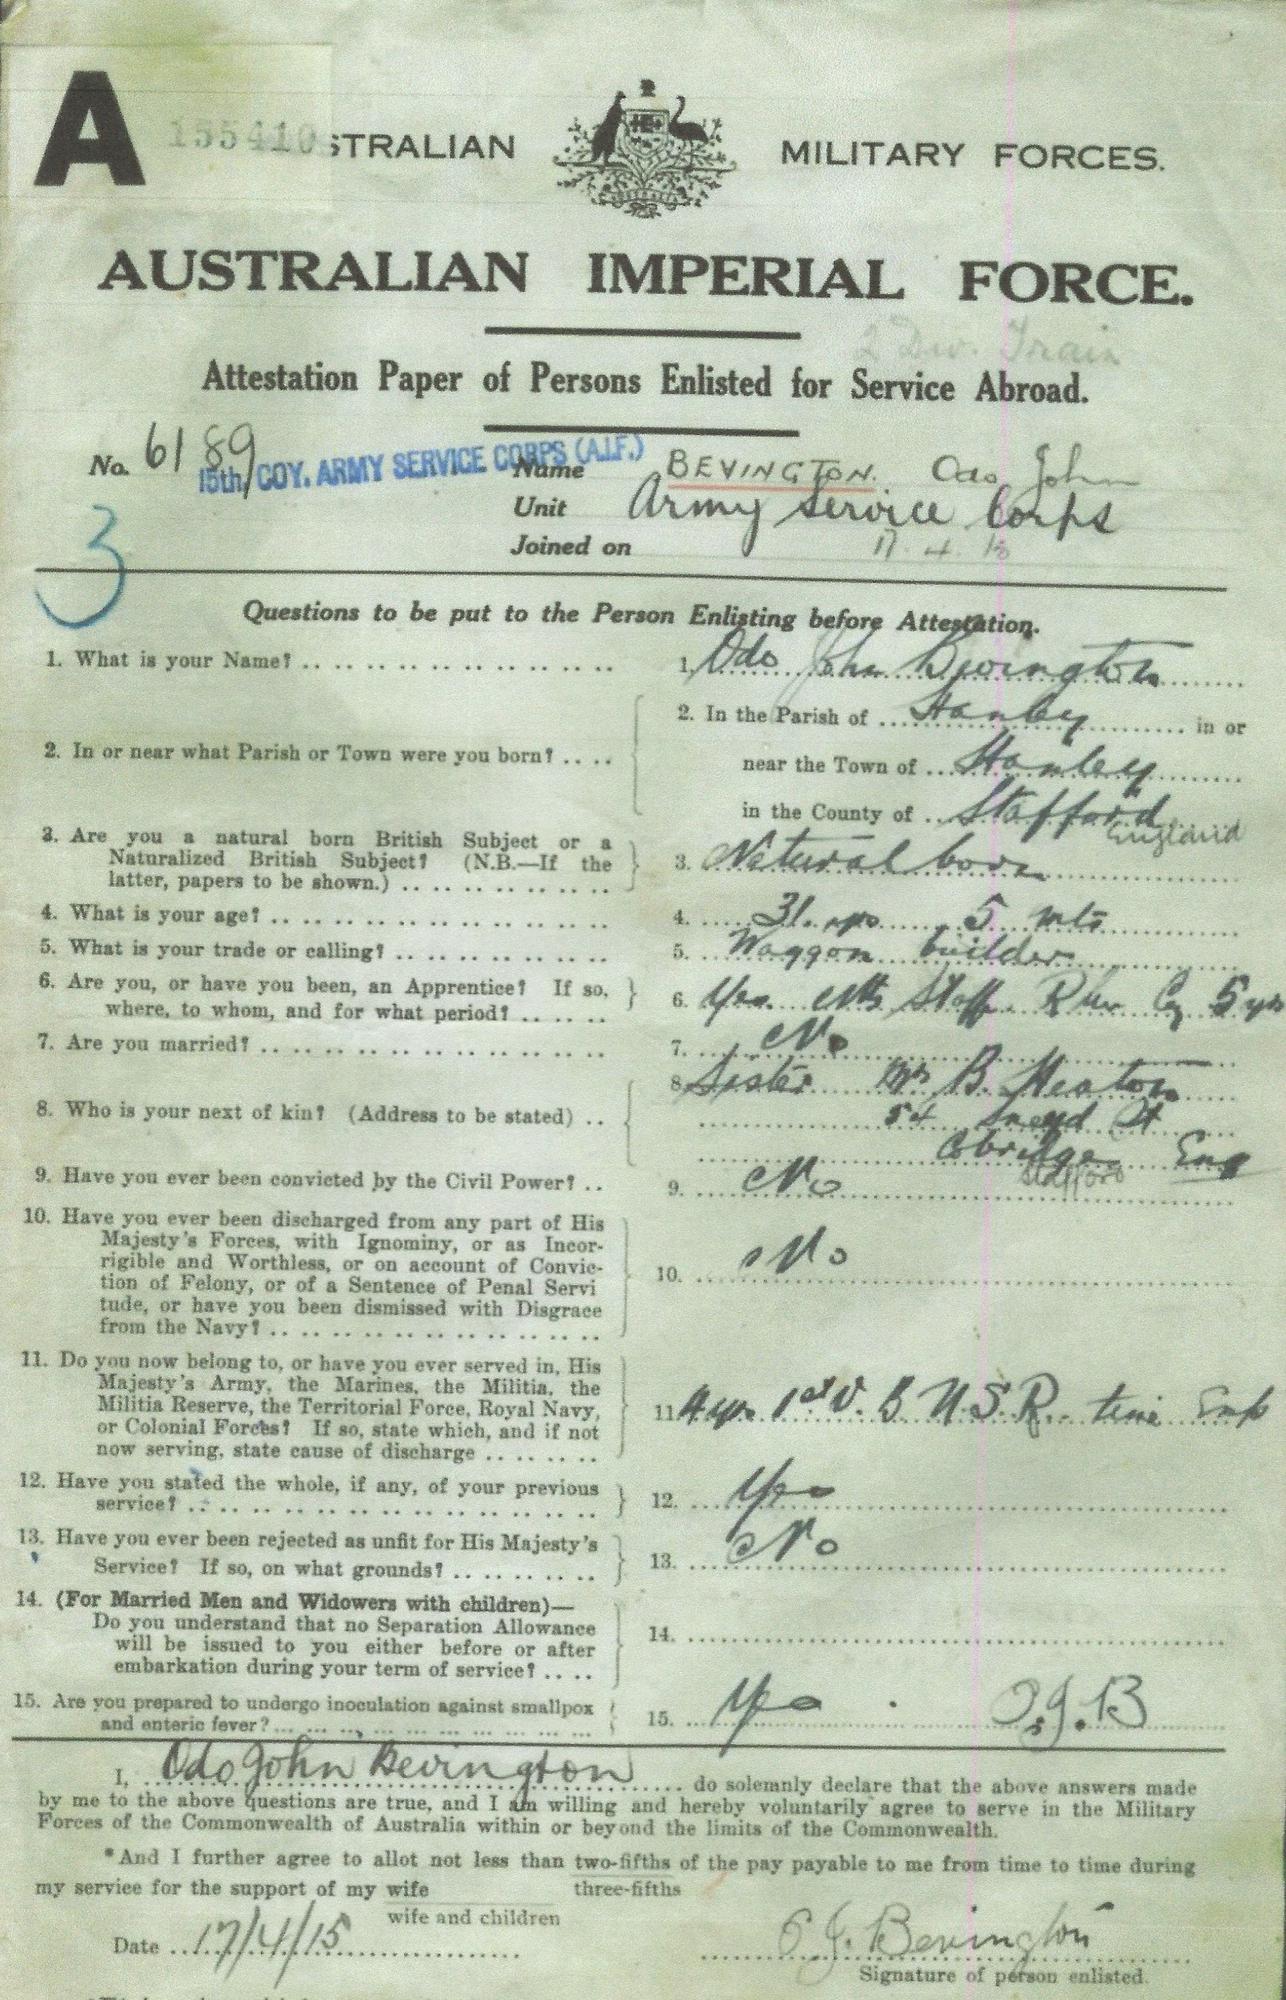 A 155410 STRALIAN MILITARY FORCES.
AUSTRALIAN IMPERIAL FORCE.
2 Div. Train
Attestation Paper of Persons Enlisted for Service Abroad.
No. 6189 15th COY. ARMY SERVICE CORPS (A.I.F.) Name BEVINGTON. Odo John
Unit Army Service Corps
3
Joined on 17.4.15
Questions to be put to the Person Enlisting before Attestation.
1. What is your Name? 1. Odo John Bevington
2. In or near what Parish or Town were you born? 2. In the Parish of Hanley in or
near the Town of Hanley
in the County of Stafford
England
3. Are you a natural born British Subject or a
Naturalized British Subject? (N.B.—If the
latter, papers to be shown.) 3. Natural born
4. What is your age? 4. 31 yrs 5 mts
5. What is your trade or calling? 5. Waggon builder
6. Are you, or have you been, an Apprentice? If so,
where, to whom, and for what period? 6. Yes. Nth Staff. Coy 5 yrs
7. Are you married? 7. No
8. Who is your next of kin? (Address to be stated) 8. Sister Mrs B. Heaton
54 Sneyd St
Cobridge Eng
Stafford
9. Have you ever been convicted by the Civil Power? 9. No
10. Have you ever been discharged from any part of His
Majesty's Forces, with Ignominy, or as Incor-
rigible and Worthless, or on account of Convic-
tion of Felony, or of a Sentence of Penal Servi
tude, or have you been dismissed with Disgrace
from the Navy? 10. No
11. Do you now belong to, or have you ever served in, His
Majesty's Army, the Marines, the Militia, the
Militia Reserve, the Territorial Force, Royal Navy,
or Colonial Forces? If so, state which, and if not
now serving, state cause of discharge 11. 4 yrs 1st V. B N. S. R. time Exp
12. Have you stated the whole, if any, of your previous
service? 12. Yes
13. Have you ever been rejected as unfit for His Majesty's
Service? If so, on what grounds? 13. No
14. (For Married Men and Widowers with children)—
Do you understand that no Separation Allowance
will be issued to you either before or after
embarkation during your term of service? 14.
15. Are you prepared to undergo inoculation against smallpox
and enteric fever? 15. Yes O.J.B
I, Odo John Bevington do solemnly declare that the above answers made
by me to the above questions are true, and I am willing and hereby voluntarily agree to serve in the Military
Forces of the Commonwealth of Australia within or beyond the limits of the Commonwealth.
*And I further agree to allot not less than two-fifths of the pay payable to me from time to time during
three-fifths
my service for the support of my wife
wife and children
Date 17/4/15 O J. Bevington
Signature of person enlisted.